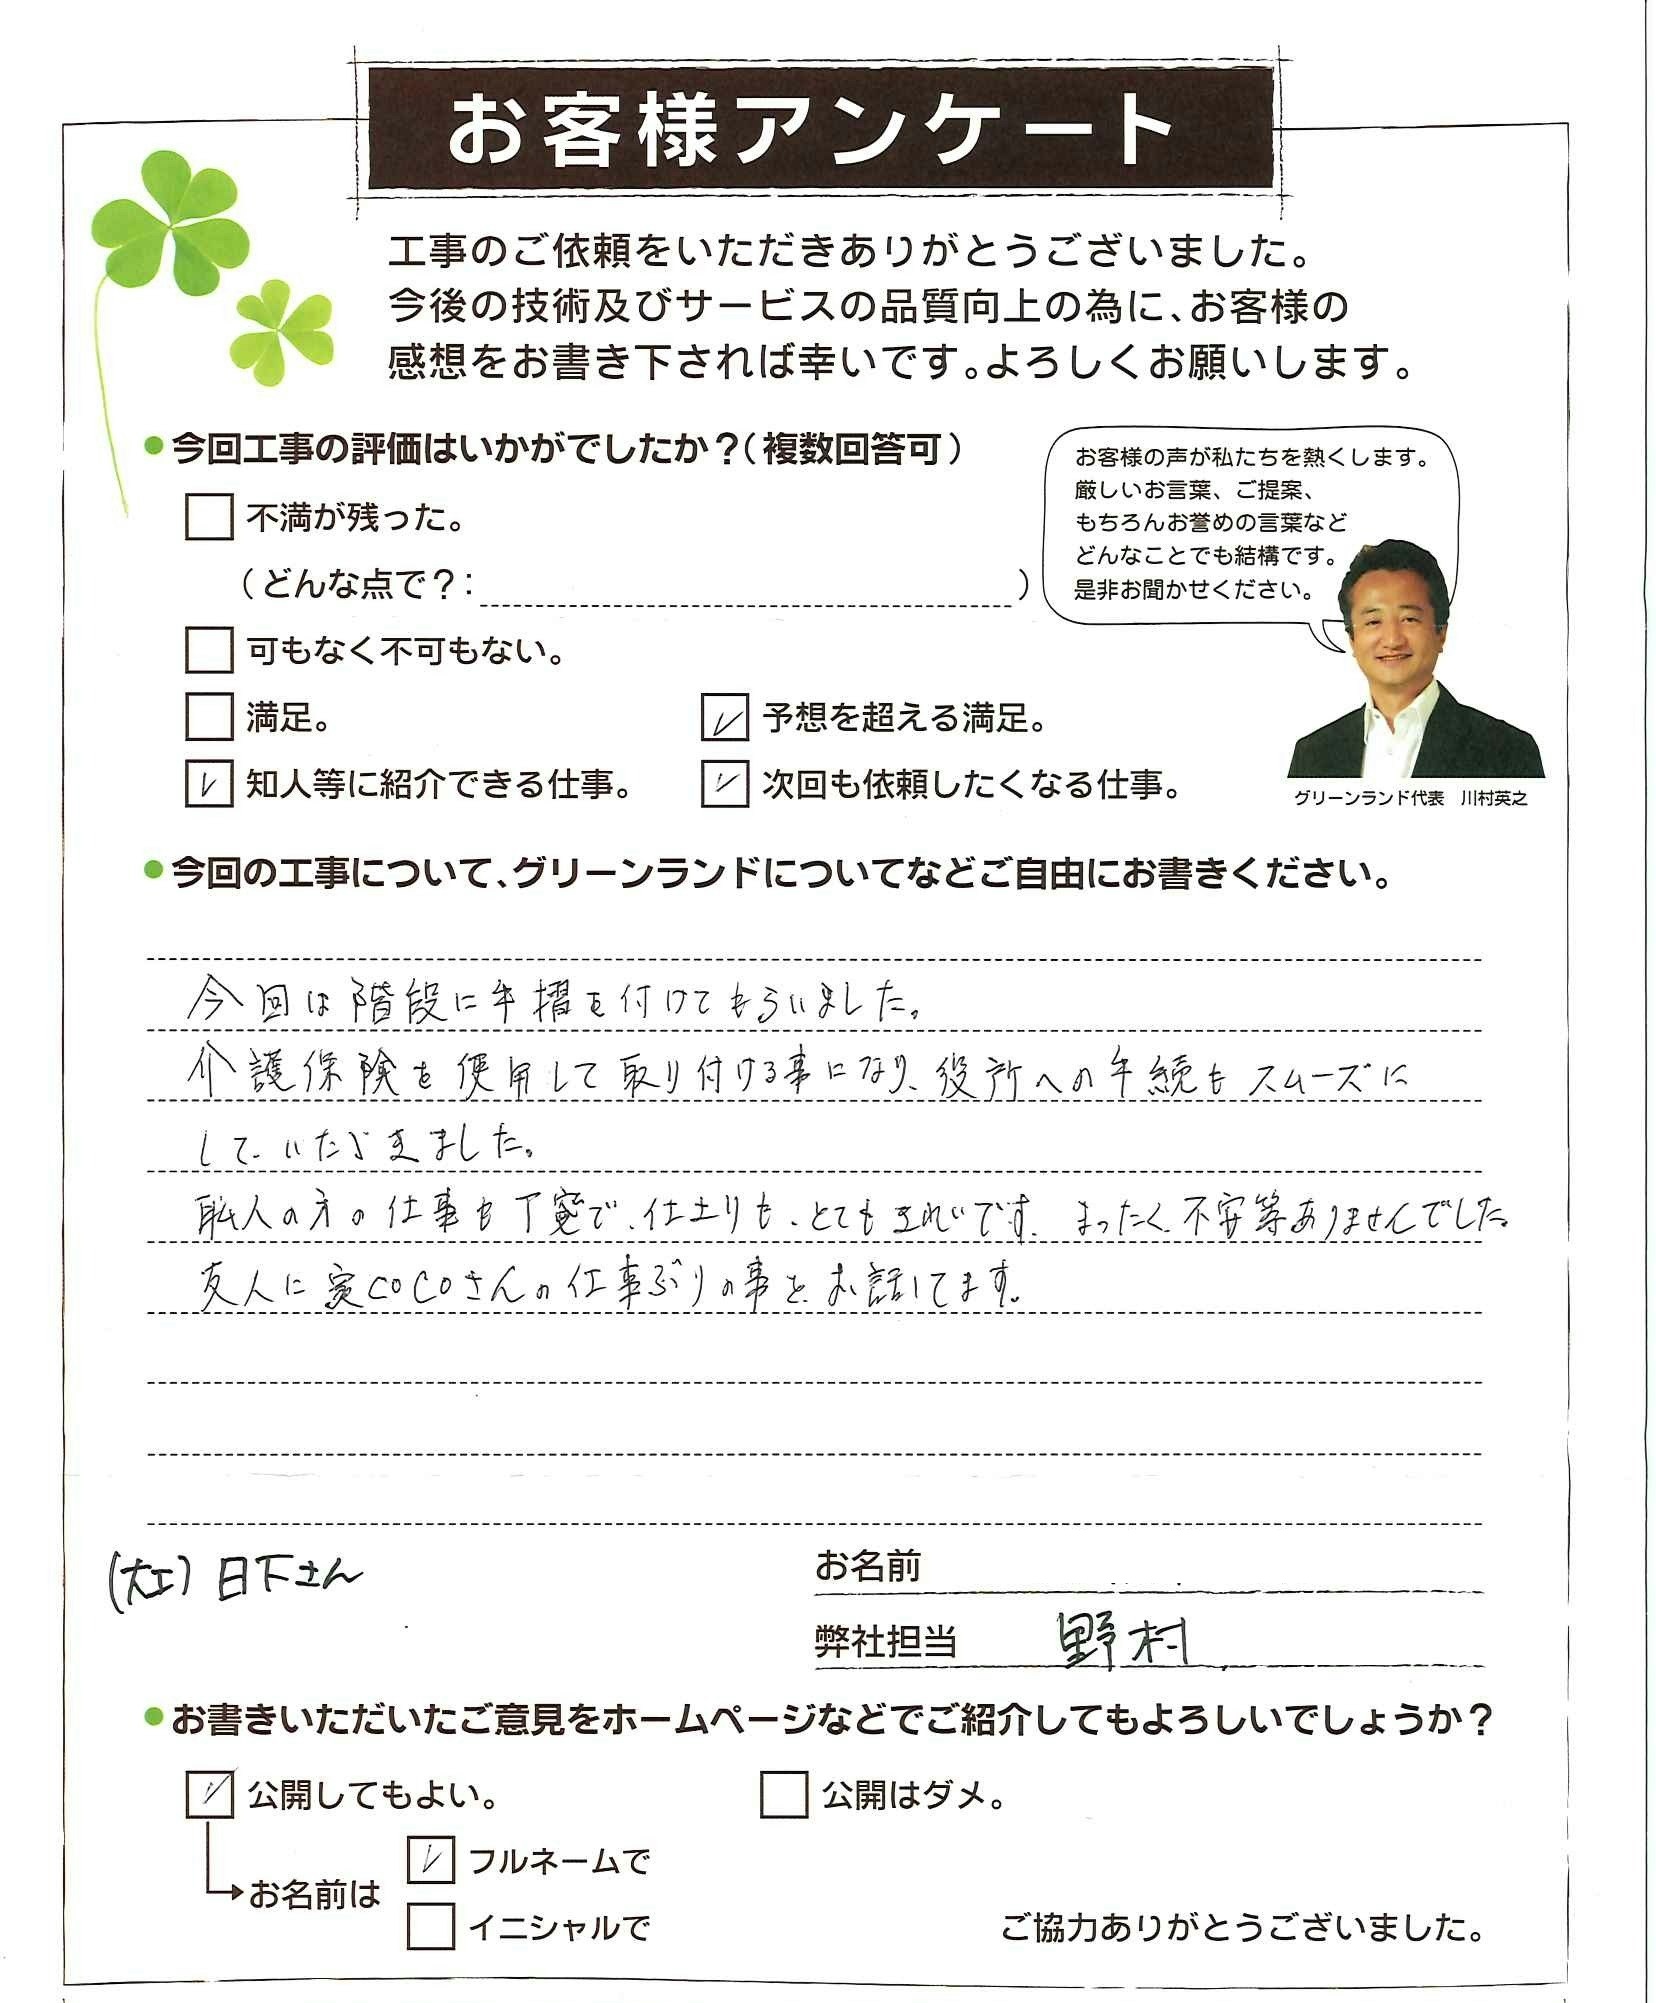 お客様アンケート
工事のご依頼をいただきありがとうございました。
今後の技術及びサービスの品質向上の為に、お客様の
感想をお書き下されば幸いです。よろしくお願いします。
●今回工事の評価はいかがでしたか？（複数回答可）
不満が残った。
（どんな点で？：　　　）
可もなく不可もない。
満足。
予想を超える満足。
知人等に紹介できる仕事。
次回も依頼したくなる仕事。
お客様の声が私たちを熱くします。
厳しいお言葉、ご提案、
もちろんお誉めの言葉など
どんなことでも結構です。
是非お聞かせください。
グリーンランド代表　川村英之
●今回の工事について、グリーンランドについてなどご自由にお書きください。
今回は階段に手摺を付けてもらいました。
介護保険を使用して取り付ける事になり、役所への手続もスムーズに
していただきました。
職人の方の仕事も丁寧で、仕上りも、とてもきれいです。まったく不安等ありませんでした。
友人に家COCOさんの仕事ぶりの事を、お話してます。
(大工) 日下さん
お名前
弊社担当　野村
●お書きいただいたご意見をホームページなどでご紹介してもよろしいでしょうか？
公開してもよい。
公開はダメ。
お名前は
フルネームで
イニシャルで
ご協力ありがとうございました。